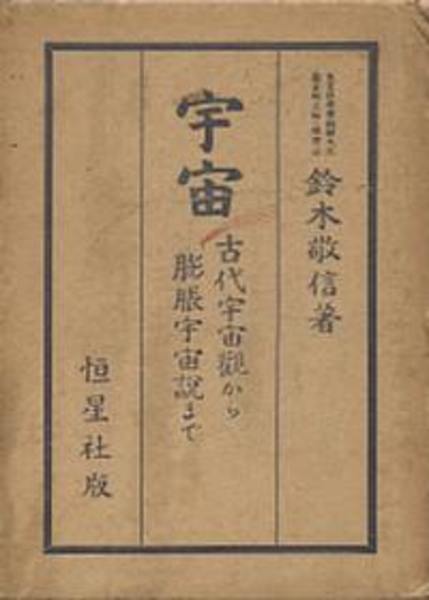 鈴木敬信著
宇宙
古代宇宙觀から
膨脹宇宙説まで
恒星社版